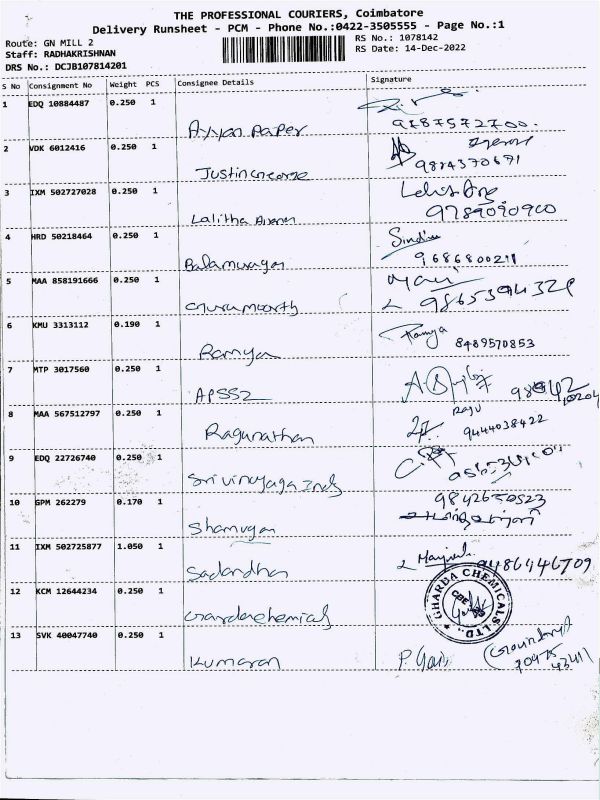 THE PROFESSIONAL COURIERS, Coimbatore
Delivery Runsheet - PCM - Phone No.:0422-3505555 - Page No.:1
Route: GN MILL 2
RS No.: 1078142
Staff: RADHAKRISHNAN
RS Date: 14-Dec-2022
DRS No.: DCJB107814201
S No Consignment No Weight PCS Consignee Details Signature
1 EDQ 10884487 0.250 1
Ayyan Paper 9787572700
2 VDK 6012416 0.250 1
Justin George 9894370671
3 IXM 502727028 0.250 1
Lalitha 9789090900
4 HRD 50218464 0.250 1 Sindhu
Balamurugan 9686800211
5 MAA 858191666 0.250 1
Gurumoorth
6 KMU 3313112 0.190 1 Ramya
Ramya 8489570853
7 MTP 3017560 0.250 1
APSS2
8 MAA 567512797 0.250 1 Ragu
Ragunathan 9444038422
9 EDQ 22726740 0.250 1
Sri vinayaga Inds
10 GPM 262279 0.170 1
Shamugan
11 IXM 502725877 1.050 1
Sadandhan 9486446709
12 KCM 12644234 0.250 1 GHARDA CHEMICALS LTD.
Garda chemicals CBE
13 SVK 40047740 0.250 1
Kumaran